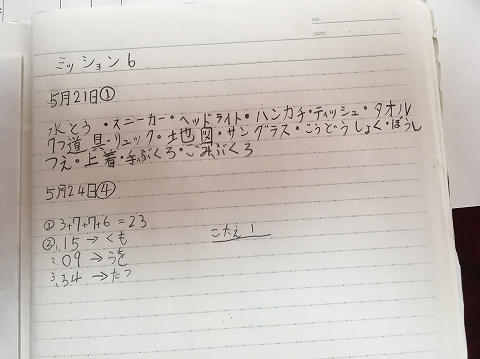 NO.
DATE
ミッション6
5月21日①
水とう・スニーカー・ヘッドライト・ハンカチ・ティッシュ・タオル
7つ道具・リュック・地図・サングラス・こうどうしょく・ぼうし
つえ・上着・手ぶくろ・ごみぶくろ
5月24日④
① 3+7+7+6=23
② 1.15→くも
2.09→うを
3.34→たつ
こたえ 1